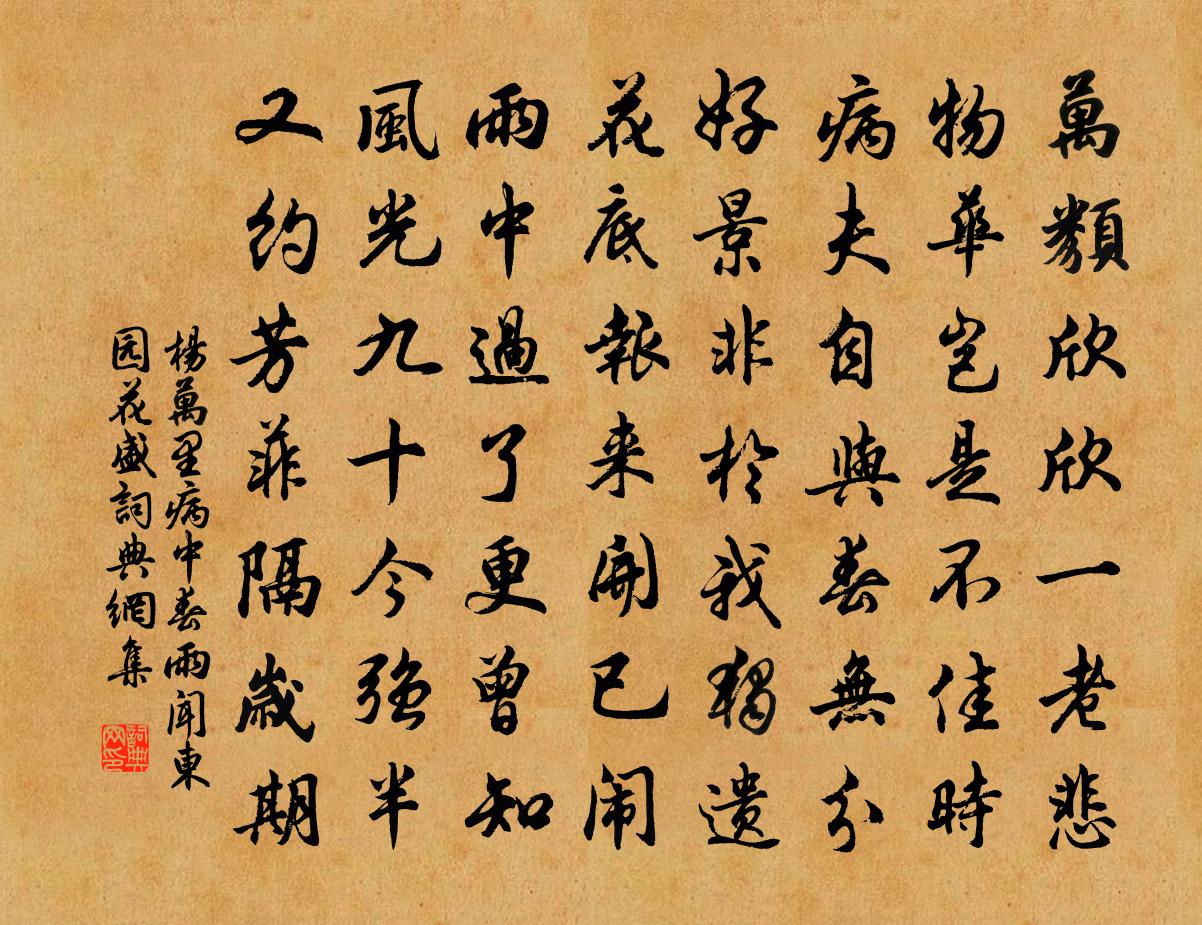 萬類欣欣一老悲
物華豈是不佳時
病夫自與春無分
好景非於我獨遺
花底報来開已闹
雨中過了更曾知
風光九十今强半
又約芳菲隔歲期
楊萬里病中春雨闻東
园花盛詞典網集
詞典网印